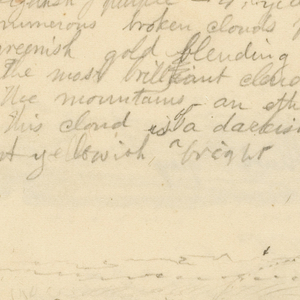 numerous broken clouds
greenish gold blending
The most brilliant cloud
the mountains an eth
This cloud is a
of yellowish, bright